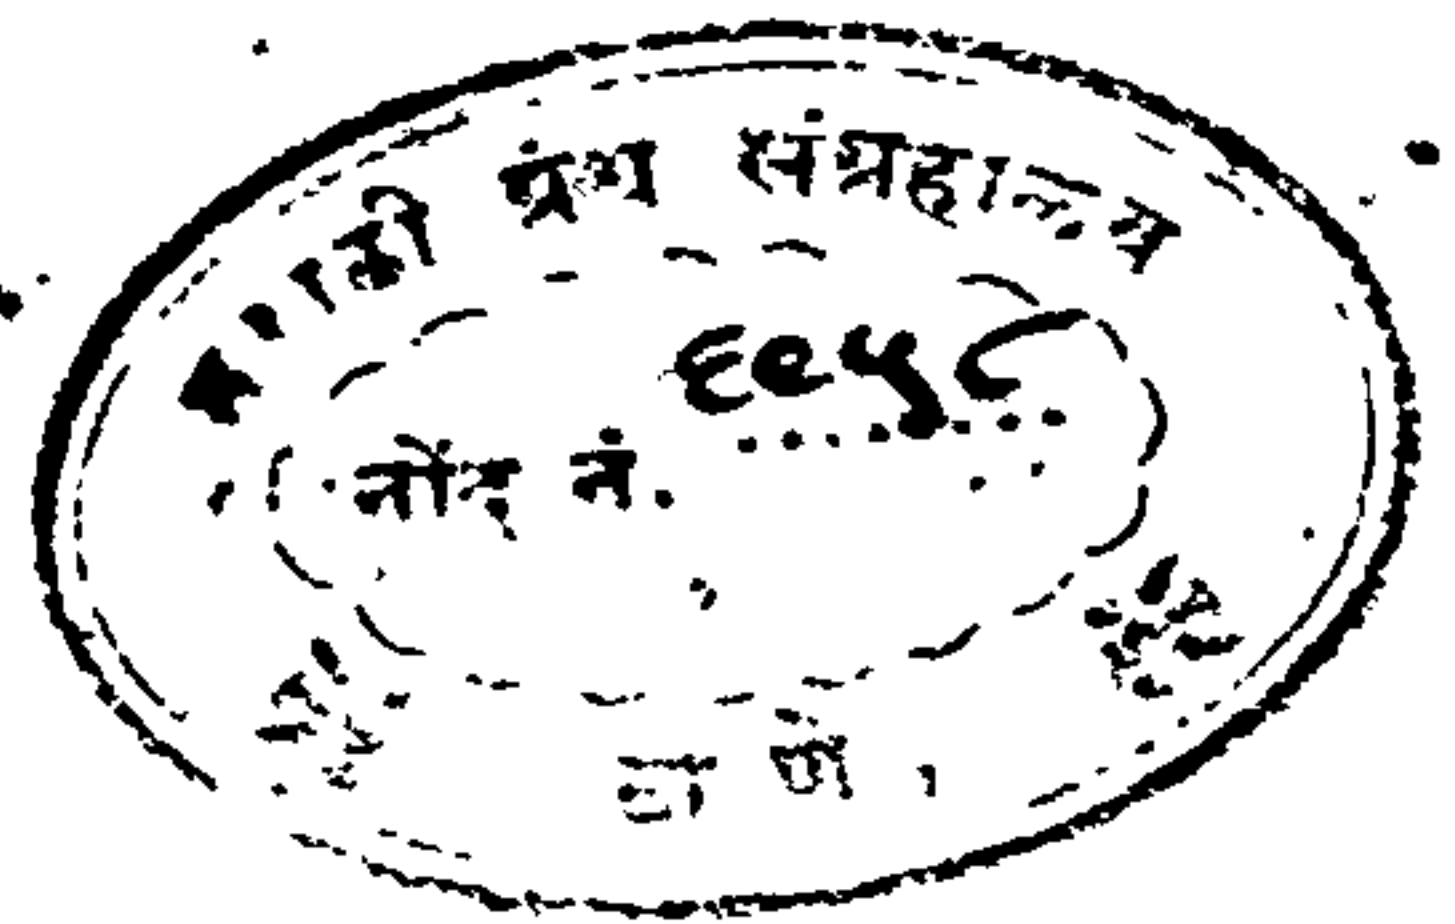 मराठी ग्रंथ संग्रहालय
६९५८
नोंद नं.
ठाणे.